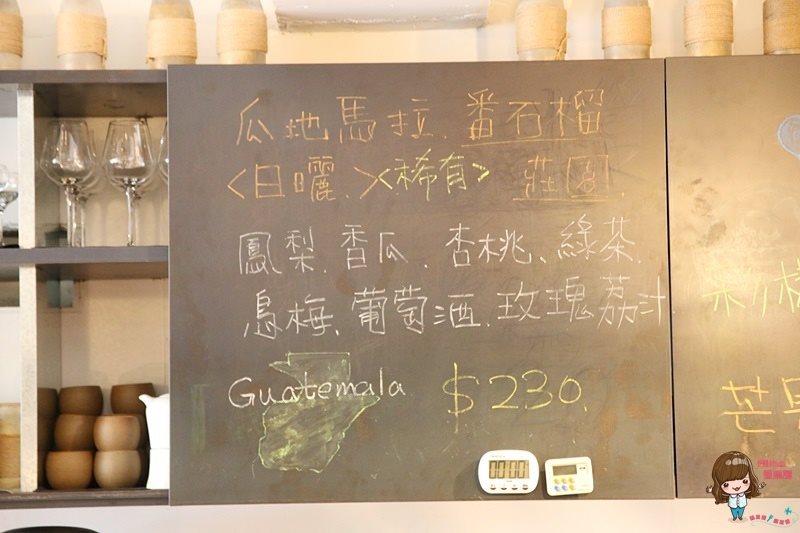 瓜地馬拉、番石榴
<日曬、><稀有> 莊園、
鳳梨、香瓜、杏桃、綠茶、
烏梅、葡萄酒、玫瑰荔汁
Guatemala $230.
芒果
10:00